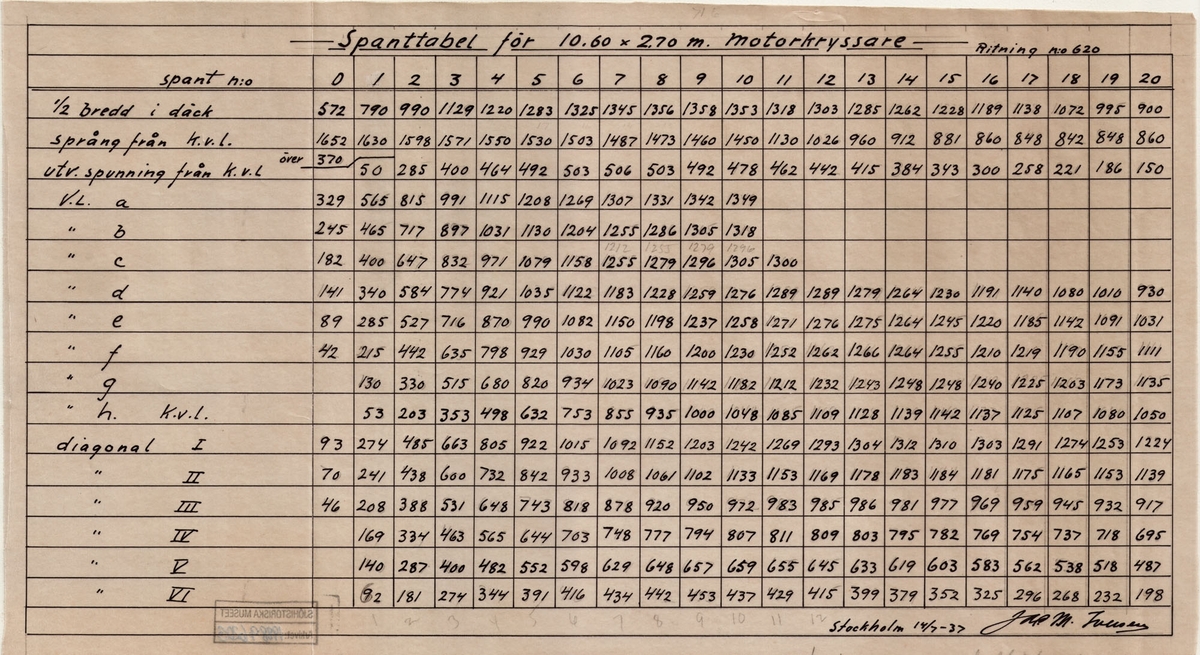 Spanttabel för 10.60 x 2.70 m. motorkryssare
Ritning n:o 620
spant n:o 0 1 2 3 4 5 6 7 8 9 10 11 12 13 14 15 16 17 18 19 20
1/2 bredd i däck 572 790 990 1129 1220 1283 1325 1345 1356 1358 1353 1318 1303 1285 1262 1228 1189 1138 1072 995 900
språng från K.v.l. 1652 1630 1598 1571 1550 1530 1503 1487 1473 1460 1450 1130 1026 960 912 881 860 848 842 848 860
utv. spunning från K.v.l över 370 50 285 400 464 492 503 506 503 492 478 462 442 415 384 343 300 258 221 186 150
V.L. a 329 565 815 991 1115 1208 1269 1307 1331 1342 1349
" b 245 465 717 897 1031 1130 1204 1255 1286 1305 1318
1212 1255 1279 1296
" c 182 400 647 832 971 1079 1158 1255 1279 1296 1305 1300
" d 141 340 584 774 921 1035 1122 1183 1228 1259 1276 1289 1289 1279 1264 1230 1191 1140 1080 1010 930
" e 89 285 527 716 870 990 1082 1150 1198 1237 1258 1271 1276 1275 1264 1245 1220 1185 1142 1091 1031
" f 42 215 442 635 798 929 1030 1105 1160 1200 1230 1252 1262 1266 1264 1255 1210 1219 1190 1155 1111
" g 130 330 515 680 820 934 1023 1090 1142 1182 1212 1232 1243 1248 1248 1240 1225 1203 1173 1135
" h. K.v.l. 53 203 353 498 632 753 855 935 1000 1048 1085 1109 1128 1139 1142 1137 1125 1107 1080 1050
diagonal I 93 274 485 663 805 922 1015 1092 1152 1203 1242 1269 1293 1304 1312 1310 1303 1291 1274 1253 1224
" II 70 241 438 600 732 842 933 1008 1061 1102 1133 1153 1169 1178 1183 1184 1181 1175 1165 1153 1139
" III 46 208 388 531 648 743 818 878 920 950 972 983 985 986 981 977 969 959 945 932 917
" IV 169 334 463 565 644 703 748 777 794 807 811 809 803 795 782 769 754 737 718 695
" V 140 287 400 482 552 598 629 648 657 659 655 645 633 619 603 583 562 538 518 487
" VI 92 181 274 344 391 416 434 442 453 437 429 415 399 379 352 325 296 268 232 198
1 2 3 4 5 6 7 8 9 10 11 12
SJÖHISTORISKA MUSEET
Stockholm 14/7-37 Jac M. Iversen